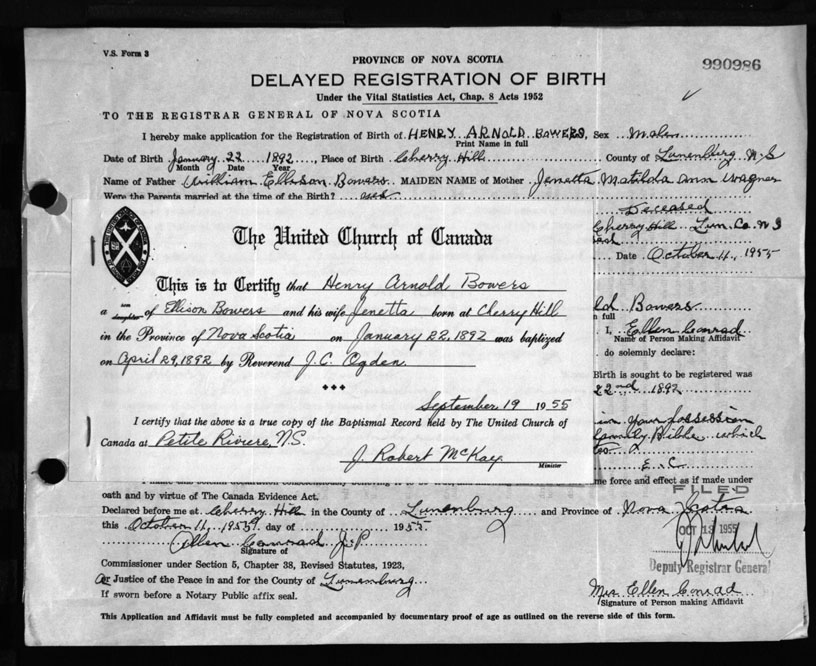 V.S. Form 3
PROVINCE OF NOVA SCOTIA
990986
DELAYED REGISTRATION OF BIRTH
Under the Vital Statistics Act, Chap. 8 Acts 1952
TO THE REGISTRAR GENERAL OF NOVA SCOTIA
I hereby make application for the Registration of Birth of HENRY ARNOLD BOWERS, Sex Male
Print Name in full
Date of Birth January 22 1892, Place of Birth Cherry Hill County of Lunenburg N.S
Month Day Year
Name of Father William Ellison Bowers MAIDEN NAME of Mother Jenetta Matilda Ann Wagner
Were the Parents married at the time of the Birth? yes
Deceased
Cherry Hill Lun. Co. N S
Date October 11, 1955
The United Church of Canada
This is to Certify that Henry Arnold Bowers
a son daughter of Ellison Bowers and his wife Jenetta born at Cherry Hill
in the Province of Nova Scotia on January 22, 1892 was baptized
on April 29, 1892 by Reverend J. C. Ogden.
September 19 1955
I certify that the above is a true copy of the Baptismal Record held by The United Church of
Canada at Petite Riviere, N.S.
J. Robert McKay
Minister
ld Bowers
n full
I, Ellen Conrad
Name of Person Making Affidavit
do solemnly declare:
Birth is sought to be registered was
22nd 1892
in your possession
family Bible which
E. C
me force and effect as if made under
oath and by virtue of The Canada Evidence Act.
FILED
Declared before me at Cherry Hill in the County of Lunenburg and Province of Nova Scotia
this October 11, 1955 day of 1955
OCT 13 1955
Allen Conrad J.P
Signature of
Deputy Registrar General
Commissioner under Section 5, Chapter 38, Revised Statutes, 1923,
or Justice of the Peace in and for the County of Lunenburg
If sworn before a Notary Public affix seal.
Mrs Ellen Conrad
Signature of Person making Affidavit
This Application and Affidavit must be fully completed and accompanied by documentary proof of age as outlined on the reverse side of this form.